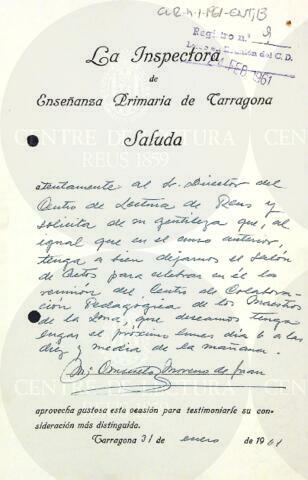 CLR-4-1-1961-ENT,13
Registro n.º 9
del C.D.
FEB. 1961
La Inspectora
de
Enseñanza Primaria de Tarragona
Saluda
atentamente al Sr. Director del
Centro de Lectura de Reus y
solicita de su gentileza que, al
igual que en el curso anterior,
tenga a bien dejarnos el Salón
de Actos para celebrar en él la
reunión del Centro de Colabora-
ción Pedagógica de los Maestros
de la Zona, que deseamos tenga
lugar el próximo lunes día 6 a las
diez y media de la mañana.
Mª Consuelo Moreno de Juan
aprovecha gustosa esta ocasión para testimoniarle su con-
sideración más distinguida.
Tarragona 31 de enero de 1961
CENTRE DE LECTURA
REUS 1859